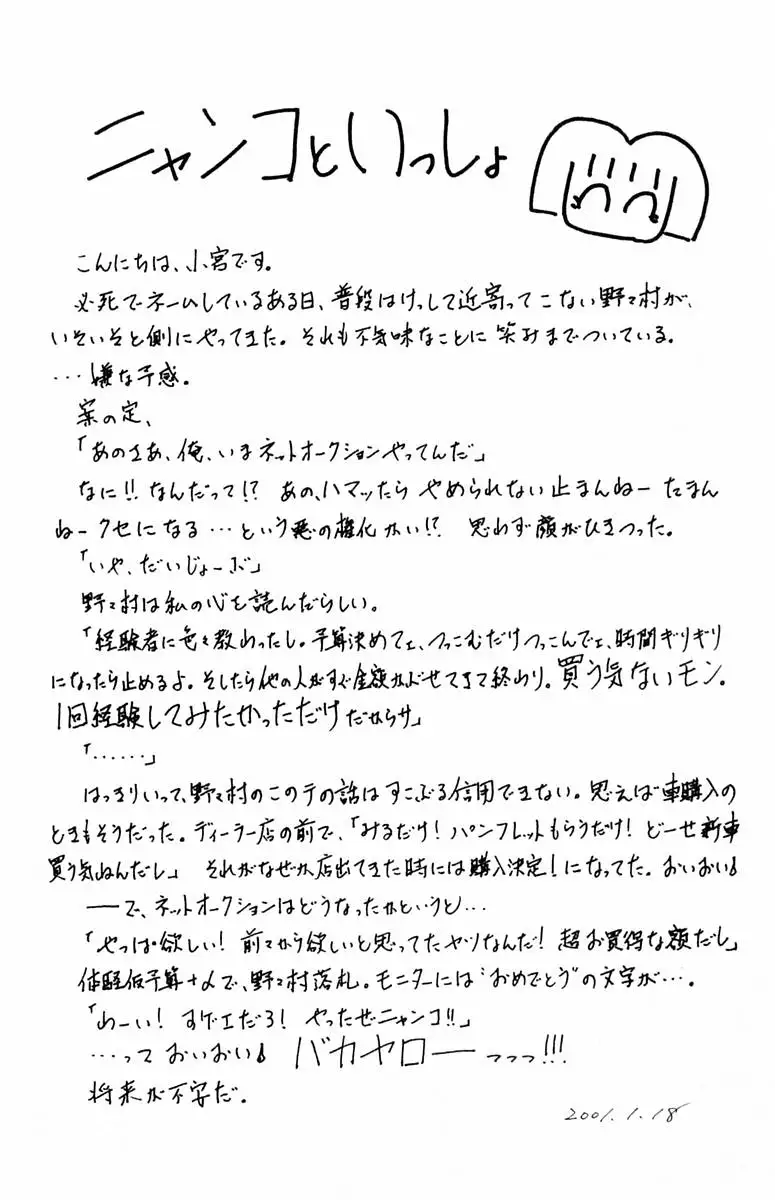 ニャンコといっしょ
こんにちは、小宮です。
必死でネームしているある日、普段はけっして近寄ってこない野々村が、
いそいそと側にやってきた。それも不気味なことに笑みまでついている。
…嫌な予感。
案の定、
「あのさあ、俺、いまネットオークションやってんだ」
なに!!なんだって!?あの、ハマッたらやめられない止まんねーたまん
ねークセになる…という悪の権化かい!?思わず顔がひきつった。
「いや、だいじょーぶ」
野々村は私の心を読んだらしい。
「経験者に色々教わったし。予算決めてェ、つっこむだけつっこんでェ、時間ギリギリ
になったら止めるよ。そしたら他の人がすぐ金額かぶせてきて終わり。買う気ないモン。
1回経験してみたかっただけだからサ」
「……」
はっきりいって、野々村のこのテの話はすこぶる信用できない。思えば車購入の
ときもそうだった。ディーラー店の前で、「みるだけ!パンフレットもらうだけ!どーせ新車
買う気ねんだし」それがなぜか店出てきた時には購入決定!になってた。おいおい
――で、ネットオークションはどうなったかというと…
「やっぱ欲しい!前々から欲しいと思ってたヤツなんだ!超お買得な額だし」
予算+αで、野々村落札。モニターには"おめでとう"の文字が…。
「わーい!すげェだろ!やったぜニャンコ!!」
…っておいおい バカヤローーっっっ!!!
将来が不安だ。
2001.1.18